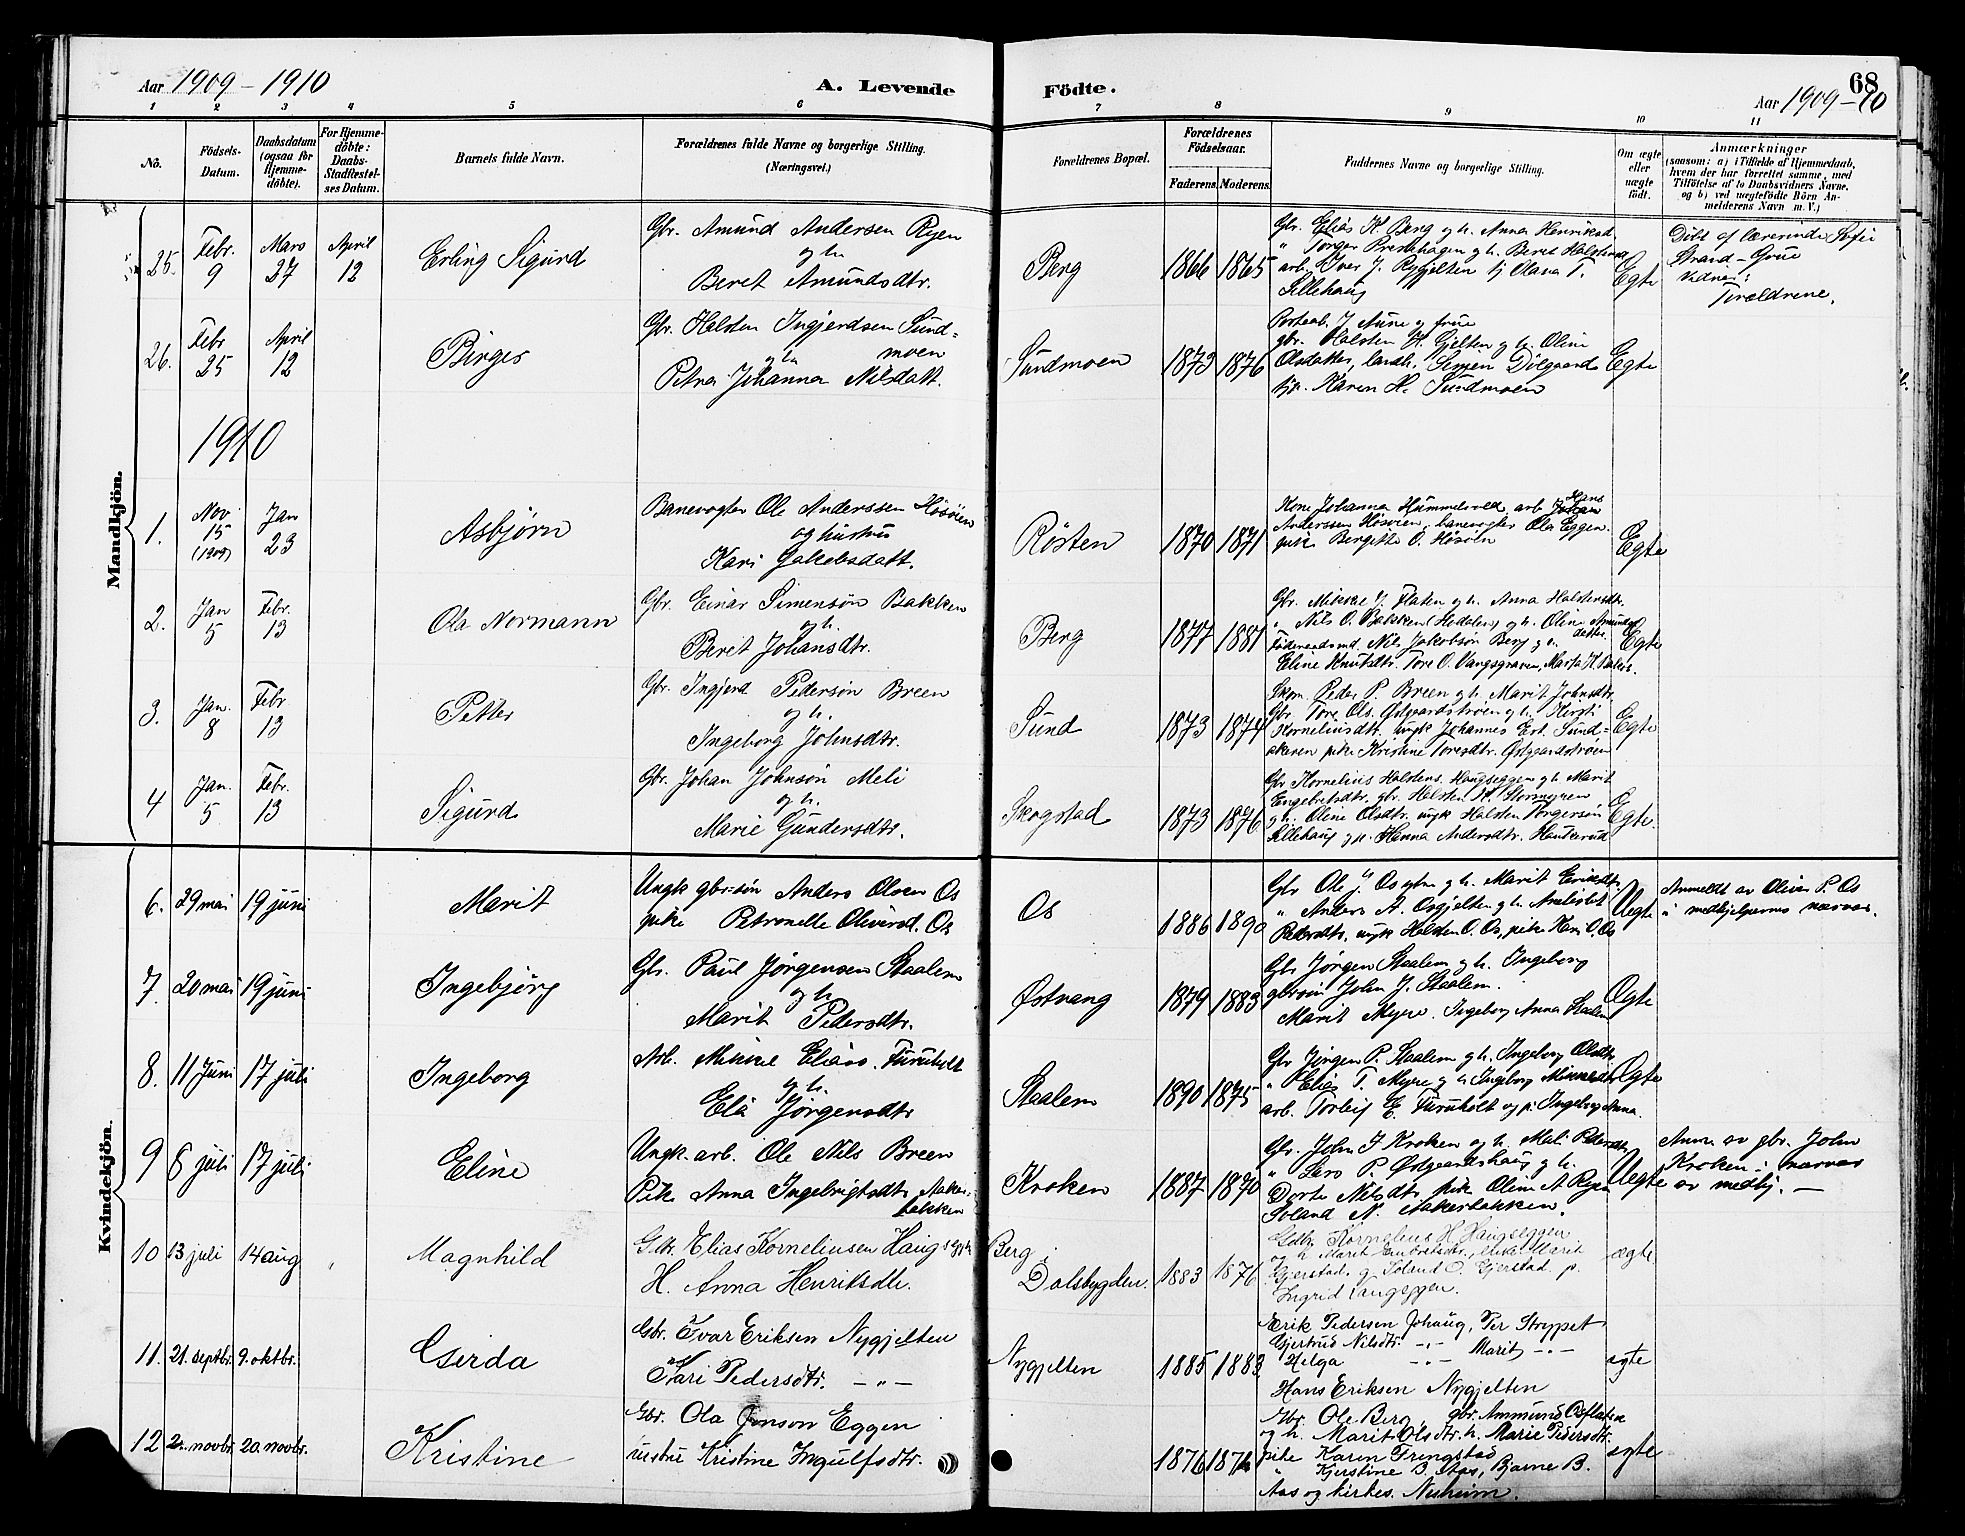 Aar 1909 - 1910
A. Levende
Födte.
68
Aar 1909-10
1 2 3 4 5 6 7 8 9 10 11
No.
Födsels-Datum.
Daabsdatum (ogsaa for Hjemme-döbte).
For Hjemme-döbte: Daabs-Stadfæstel-ses Datum.
Barnets fulde Navn.
Forældrenes fulde Navne og borgerlige Stilling. (Næringsvei.)
Forældrenes Bopæl.
Forældrenes Födselsaar.
Faderens.
Moderens.
Faddernes Navne og borgerlige Stilling.
Om ægte eller uægte födt.
Anmærkninger
(saasom: a) i Tilfælde af Hjemmedaab, hvem der har forrettet samme, med Tilföielse af to Daabsvidners Navne, og b) ved uægtefödte Börn Anmelderens Navn m. V.)
Mandkjön.
25. Febr. 9 Mars 27 April 12
Erling Sigurd
Gbr. Amund Andersen Ryen
og h.
Beret Amundsdtr.
Berg 1866 1865
Gbr. Elias K. Berg og h. Anna Henriksd.
Lillehaug
Egte
Döbt af lærerinde Sofie
Strand - Grue
Vidner:
Forældrene.
26. Febr 25 April 12
Birger
Gbr. Halsten Ingjerdsen Sund=
moen
og h.
Petra Johanna Nilsdatt.
Sundmoen 1873 1876
J. Aune og frue
gbr. Halsten H. Gjelten og h. Oline
Olsdatter, landh. Dölgaard
Karen H. Sundmoen
Egte
1910
1. Nov 15 (1909) Jan 23
Asbjörn
Banevogter Ole Anderssen Hösöien
og hustru
Kari Jakobsdatt.
Rösten 1870 1871
Kone Johanna Hummelvold, arb Hans
Anderssen Hösöien, banevogter Ola Eggen.
pike Bergitte O. Hösöien
Egte
2. Jan 5 Febr. 13
Ola Normann
Gbr. Einar Simensön Bakken
og h.
Beret Johansdtr.
Berg 1877 1881
Gbr. Mikkel J. Floten og h. Anna Halstensdtr.
" Nils O. Bakken (Hodalen) og h. Oline Amunds
datter.
Föderaadsmd. Nils Jakobsön Berg og h.
Eline Knutsdtr. Tore O. Vangsgraven, Marta H.
Egte
3. Jan. 8 Febr 13
Petter
Gbr. Ingjerd Pedersön Breen
og h.
Ingeborg Johnsdtr.
Sund 1873 1874
Skom. Peder P. Breen og h. Marit Johnsdtr.
Gbr. Tore Ols. Östgaardströen og h. Kirsti
Korneliusdtr. ungk Johannes Est. Sund=
skaren pike Kristine Toresdtr. Östgaardströen
Egte
4 Jan. 5 Febr. 13
Sigurd
Gbr. Johan Johnsön Meli
og h.
Marie Gundersdtr.
Skogstad 1873 1876
Gbr Kornelius Halstens. Haugseggen og h. Marit
Engebretsdtr. gbr. Halsten H. Stormyren
og h. Oline Olsdtr. ungk Halsten Torgersön
Lillehaug og p. Hanna Andersdtr.
Egte.
Kvindekjön.
6. 29 mai 19 juni
Marit
Ungk gbr-sön Anders Olsen Os
pike Petronelle Oliversd. Os
Os 1886 1890
Gbr Ole J. Os og h. Marit Eriksdtr.
" Anders A. Osgjelten og h.
Pedersdtr. ungk Halsten O. Os, pike Kari O. Os
Uegte
Anmeldt av Oliver P. Os
i medhjelpernes nærvær.
7. 20 mai 19 juni
Ingebjörg
Gbr. Paul Jörgensen Staalem
og h.
Marit Pedersdtr.
Östvang 1879 1883
Gbr Jörgen Staalem og h. Ingeborg
gbrsön John J. Staalem.
Marit Myre. Ingeborg Anna Staalem
Ogte
8. 11 Juni 17 juli
Ingeborg
Arb. Mikkel Eliass. Furuholt
og h.
Eli Jörgensdtr
Staalem 1890 1875
Gbr Jörgen P. Staalem og h. Ingeborg Olsdtr.
" Elias T. Myre og h Ingeborg Mikkelsdtr
arb. Torleif E. Furuholt og p. Ingeborg Anna.
Ogte
9 8 juli 17 juli
Eline
Ungk. arb. Ole Nils Breen
Pike Anna Ingebrigtsdtr Aaker-
bakken
Kroken 1887 1870
Gbr. John J Kroken og h. Mali Pedersdtr
" Lars P. Östgaardshaug og h.
Dorte Nilsdtr pike Oline A. Ryen
Joland N. Aakerbakken.
Uegte
Anm. av gbr. John
Kroken i nærvær
av medhj. —
10 13 juli 14 aug
Magnhild
Gbr. Elias Korneliusen Haugseggen
H. Anna Henriksdtr.
Berg i
Dalsbygden. 1883 1876
Gdbr. Kornelius H Haugseggen
og h Marit Embretsdtr, Marit
Gjerstad, og Joland O. Gjerstad p.
Ingrid Haugseggen.
ægte
11. 21. septbr. 9. oktbr.
Gerda
Gbr. Ivar Eriksen Nygjelten
Kari Pedersdtr. — " —
Nygjelten 1885 1883
Erik Pedersen Johaug, Per Strypet
Gjertrud Nilsdtr. -"- Marit -"-
Helga -"-
Hans Eriksen Nygjelten
ægte
12 2. novbr. 20. novbr.
Kristine
Gbr. Ola Jonson Eggen
hustru Kristine Ingulfsdtr.
1876 1876
Gbr. Ole Berg, gbr. Ammund Osflaten
og h. Marit Olsdtr. h. Marie Pedersdtr.
pike Karen Trengstad
" Kjerstine B. Aas, Bjarne B.
Aas og kirkes. Nusheim.
ægte